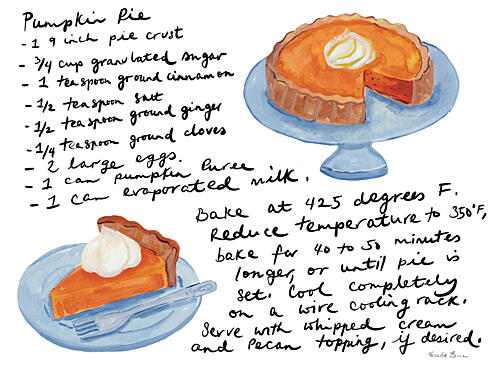 Pumpkin Pie
- 1 9 inch pie crust
- 3/4 cup granulated sugar
- 1 teaspoon ground cinnamon
- 1/2 teaspoon salt
- 1/2 teaspoon ground ginger
- 1/4 teaspoon ground cloves
- 2 large eggs.
- 1 can pumpkin puree
- 1 can evaporated milk.
Bake at 425 degrees F.
Reduce temperature to 350°F,
bake for 40 to 50 minutes
longer, or until pie is
set. Cool completely
on a wire cooling rack.
Serve with whipped cream
and Pecan topping, if desired.